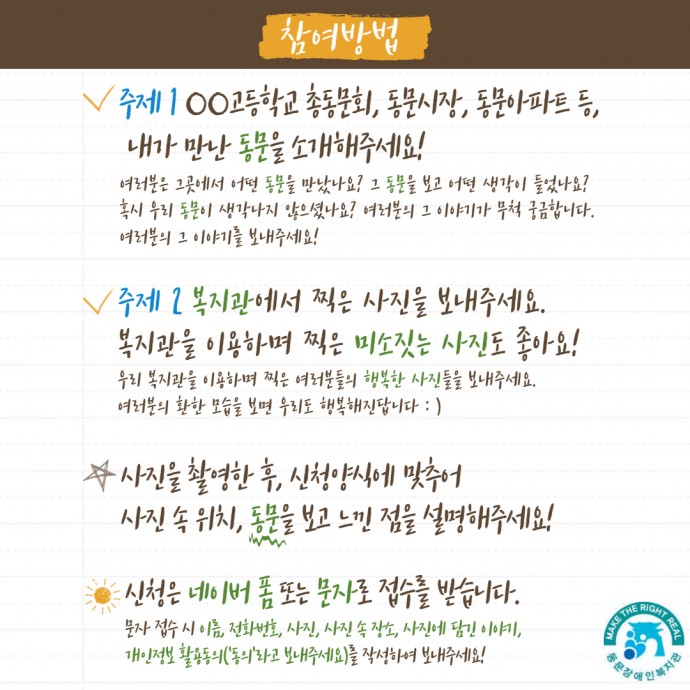 참여방법
주제 1 OO고등학교 총동문회, 동문시장, 동문아파트 등,
내가 만난 동문을 소개해주세요!
여러분은 그곳에서 어떤 동문을 만났나요? 그 동문을 보고 어떤 생각이 들었나요?
혹시 우리 동문이 생각나지 않으셨나요? 여러분의 그 이야기가 무척 궁금합니다.
여러분의 그 이야기를 보내주세요!
주제 2 복지관에서 찍은 사진을 보내주세요.
복지관을 이용하며 찍은 미소짓는 사진도 좋아요!
우리 복지관을 이용하며 찍은 여러분들의 행복한 사진들을 보내주세요.
여러분의 환한 모습을 보면 우리도 행복해진답니다 : )
사진을 촬영한 후, 신청양식에 맞추어
사진 속 위치, 동문을 보고 느낀 점을 설명해주세요!
신청은 네이버 폼 또는 문자로 접수를 받습니다.
문자 접수 시 이름, 전화번호, 사진, 사진 속 장소, 사진에 담긴 이야기,
개인정보 활용동의('동의'라고 보내주세요)를 작성하여 보내주세요!
MAKE THE RIGHT REAL
동문장애인복지관